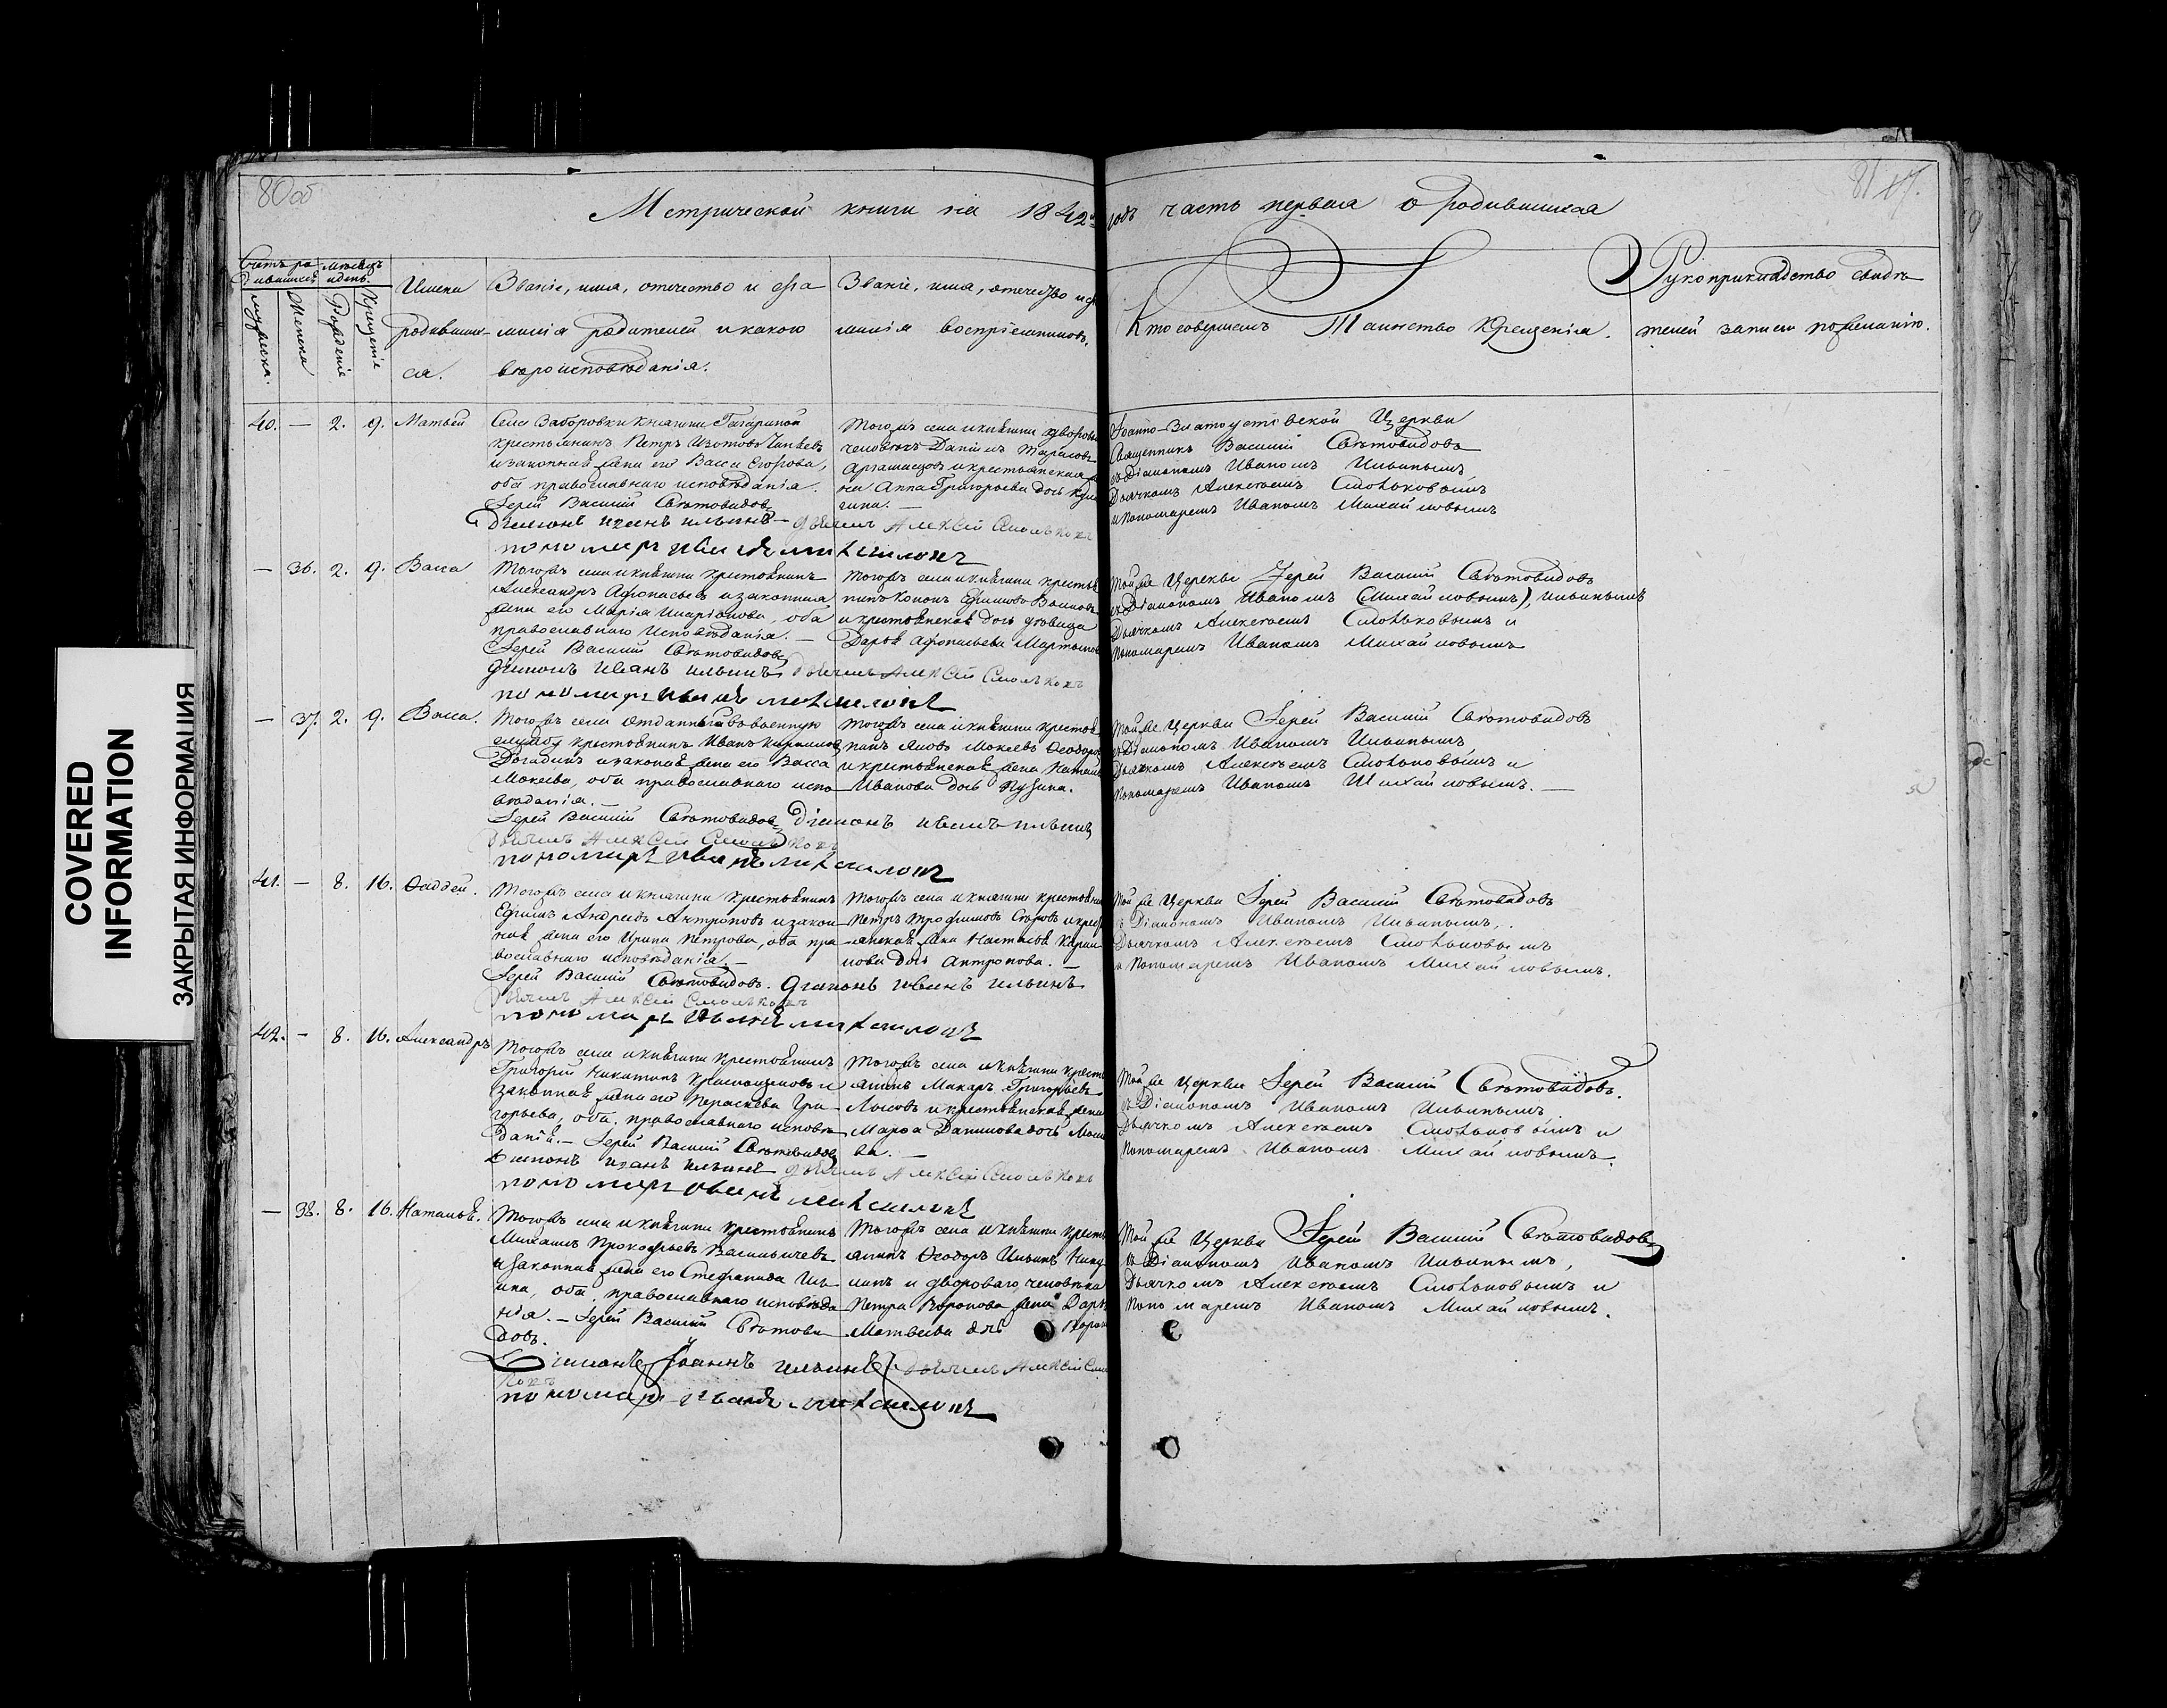 80 об
81
Метрической книги на 1842й годъ часть первая о родившихся
Счетъ родившихся
Мѣсяцъ и день.
мужеска.
Женска
Рожденіе
Крещеніе
Имена родившихся.
Званіе, имя, отечество и фамилія родителей и какого вѣроисповѣданія.
Званіе, имя, отечество и фамилія воспріемниковъ.
Кто совершалъ Таинство Крещенія.
Рукоприкладство свидѣтелей записи по желанію.
40. — 2. 9. Матвей
Села Заборовки Княгини Гагариной
крестьянинъ Петръ Изотовъ
и законная жена его Васса Егорова,
оба православнаго исповѣданія.
Іерей Василій Святовидовъ
Діаконъ Иванъ Ильинъ — дьячекъ Алексѣй Смольковъ
пономарь Иванъ Михайловъ
Тогожъ села и княгини дворовый
человѣкъ Даніилъ Тарасовъ
и крестьянская
Анна Григорьева дочь
Іоанно-Златоустовской Церкви
Священникъ Василій Святовидовъ
съ Діакономъ Иваномъ Ильинымъ,
Дьячкомъ Алексѣемъ Смольковымъ
и Пономаремъ Иваномъ Михайловымъ
— 36. 2. 9. Васса
Тогожъ села и княгини крестьянинъ
Александръ Афонасьевъ и законная
жена его Марія Иларіонова, оба
православнаго исповѣданія. —
Іерей Василій Святовидовъ
Діаконъ Иванъ Ильинъ дьячекъ Алексѣй Смольковъ
пономарь Иванъ Михайловъ
Тогожъ села и княгини крестья
нинъ Кононъ Ефимовъ
и крестьянская дочь дѣвица
Дарья Афонасьева
Тойже Церкви Іерей Василій Святовидовъ
съ Діакономъ Иваномъ (Михайловымъ), Ильинымъ
Дьячкомъ Алексѣемъ Смольковымъ и
Пономаремъ Иваномъ Михайловымъ
— 37. 2. 9. Васса.
Тогожъ села отданный въ военную
службу крестьянинъ Иванъ Кириловъ
и законная жена его Васса
Мокеева, оба православнаго испо
вѣданія. —
Іерей Василій Святовидовъ Діаконъ Иванъ Ильинъ
дьячекъ Алексѣй Смольковъ
пономарь Иванъ Михайловъ
Тогожъ села и княгини крестья
нинъ Яковъ Мокеевъ
и крестьянская жена
Иванова дочь Кузина.
Тойже Церкви Іерей Василій Святовидовъ
съ Діакономъ Иваномъ Ильинымъ
Дьячкомъ Алексѣемъ Смольковымъ и
Пономаремъ Иваномъ Михайловымъ. —
41. — 8. 16. Ѳаддей.
Тогожъ села и княгини крестьянинъ
Ефимъ Андреевъ Антроповъ и закон
ная жена его Ирина Петрова, оба пра
вославнаго исповѣданія. —
Іерей Василій Святовидовъ. Діаконъ Иванъ Ильинъ
дьячекъ Алексѣй Смольковъ
пономарь Иванъ Михайловъ
Тогожъ села и княгини крестьяни
Петръ Трофимовъ Егоровъ и кресть
янская жена Настасья
дочь Антропова. —
Тойже Церкви Іерей Василій Святовидовъ
съ Діакономъ Иваномъ Ильинымъ,
Дьячкомъ Алексѣемъ Смольковымъ
и Пономаремъ Иваномъ Михайловымъ.
42. — 8. 16. Александръ
Тогожъ села и княгини крестьянинъ
Григорій Никитинъ и
законная жена его Параскева Гри
горьева, оба православнаго исповѣ
данія. — Іерей Василій Святовидовъ
Діаконъ Иванъ Ильинъ дьячекъ Алексѣй Смольковъ
пономарь Иванъ Михайловъ
Тогожъ села и княгини кресть
янинъ Макаръ Григорьевъ
и крестьянская жена
Марѳа Данилова дочь
Тойже Церкви Іерей Василій Святовидовъ.
съ Діакономъ Иваномъ Ильинымъ
Дьячкомъ Алексѣемъ Смольковымъ и
Пономаремъ Иваномъ Михайловымъ.
— 38. 8. 16. Наталья.
Тогожъ села и княгини крестьянинъ
Михаилъ Прокофьевъ Васильичевъ
и законная жена его Стефанида Иль
ина, оба православнаго исповѣда
нія. — Іерей Василій Святови
довъ.
Діаконъ Іоаннъ Ильинъ дьячекъ Алексѣй Смоль
ковъ
пономарь Иванъ Михайловъ
Тогожъ села и княгини кресть
янинъ Ѳеодоръ Ильинъ
и двороваго человѣка
Петра Воронова жена Дарья
Матвеева дочь
Тойже Церкви Іерей Василій Святовидовъ
съ Діакономъ Иваномъ Ильинымъ,
Дьячкомъ Алексѣемъ Смольковымъ и
Пономаремъ Иваномъ Михайловымъ.
COVERED
INFORMATION
ЗАКРЫТАЯ ИНФОРМАЦИЯ